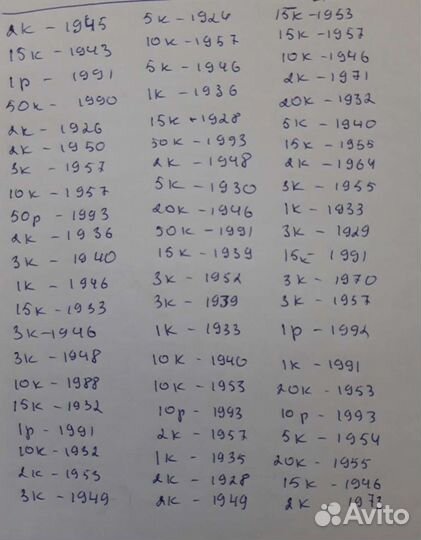 2к - 1945
15к - 1943
1р - 1991
50к - 1990
2к - 1926
2к - 1950
3к - 1957
10к - 1957
50р - 1993
2к - 1936
3к - 1940
1к - 1946
15к - 1933
3к - 1946
3к - 1948
10к - 1988
15к - 1932
1р - 1991
10к - 1932
2к - 1953
3к - 1949
5к - 1924
10к - 1957
5к - 1946
1к - 1936
15к - 1928
50к - 1993
2к - 1948
5к - 1930
20к - 1946
50к - 1991
15к - 1939
3к - 1952
3к - 1939
1к - 1933
10к - 1940
10к - 1953
10р - 1993
2к - 1957
1к - 1935
2к - 1928
2к - 1949
15к - 1953
15к - 1957
10к - 1946
2к - 1971
20к - 1932
5к - 1940
15к - 1955
2к - 1964
3к - 1955
1к - 1933
3к - 1929
15к - 1991
3к - 1970
3к - 1957
1р - 1992
1к - 1991
20к - 1953
10р - 1993
5к - 1954
20к - 1955
15к - 1946
2к - 1973
Avito